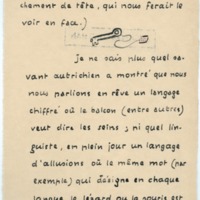 chement de tête, qui nous ferait le
voir en face.)
Je ne sais plus quel sa-
vant autrichien a montré que nous
nous parlions en rêve un langage
chiffré où le balcon (entre autres)
veut dire les seins ; ni quel lin-
guiste, en plein jour un langage
d'allusions où le même mot (par
exemple) qui désigne en chaque
langue le lézard ou la souris est